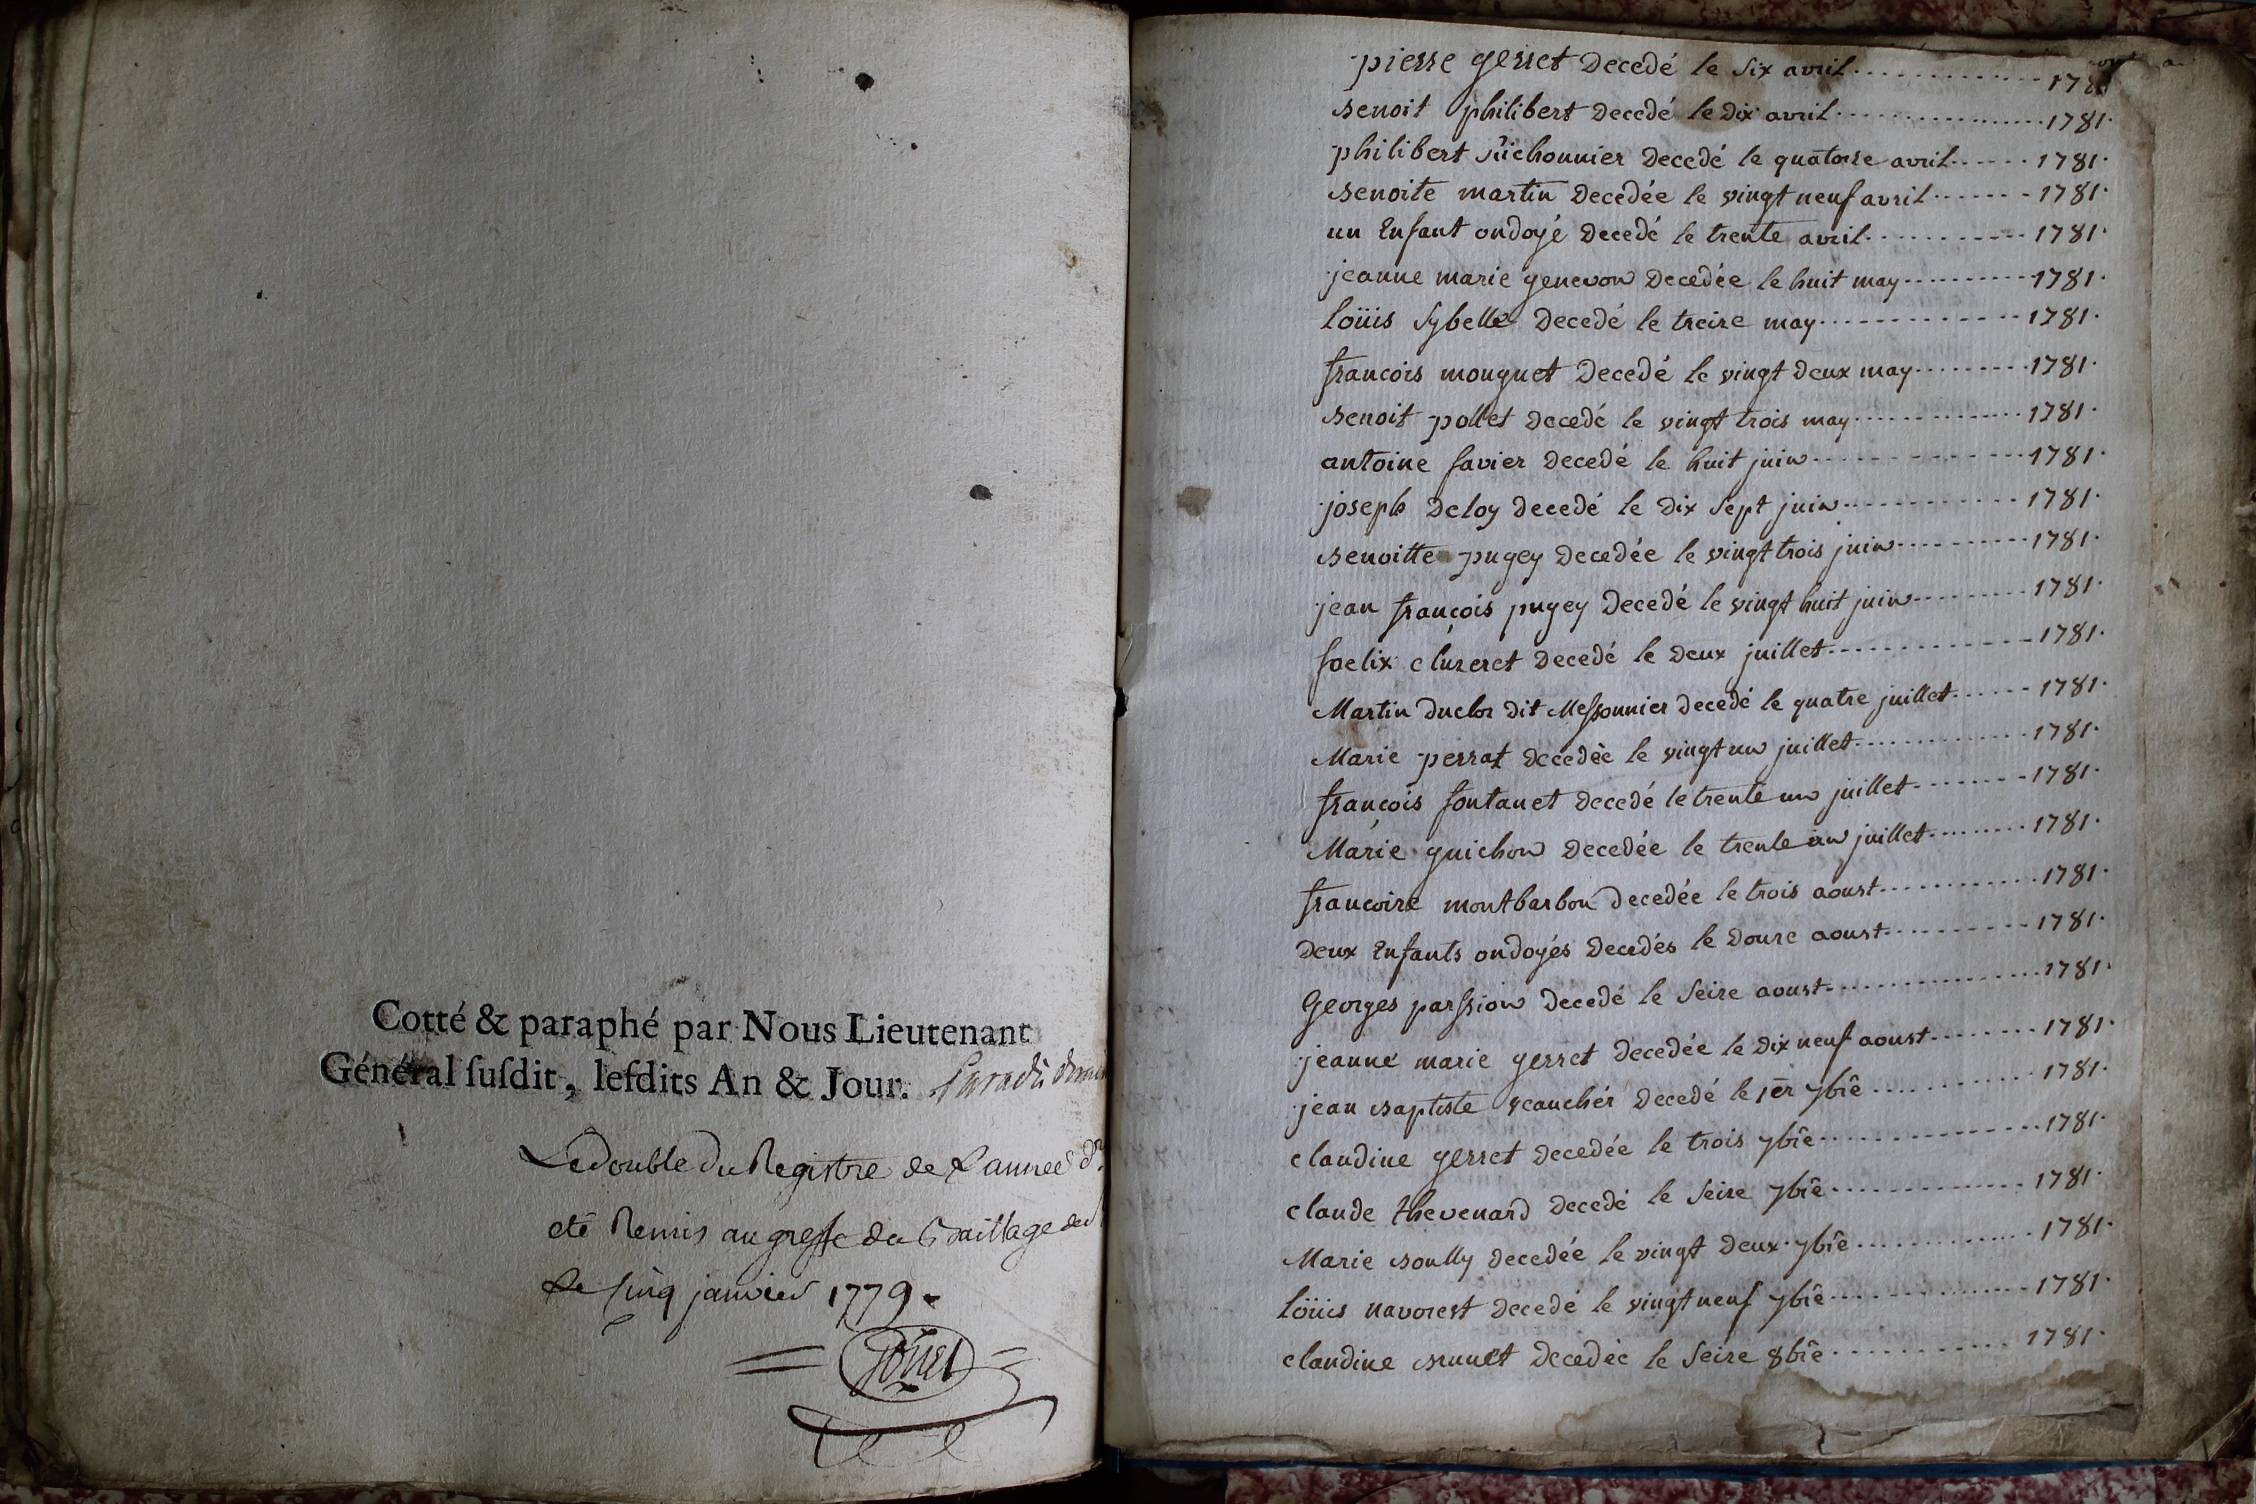 Cotté & paraphé par Nous Lieutenant
Général ſuſdit, leſdits An & Jour.
Le double du Registre de L'année
eté Remis au greffe du Bailliage de
Le Cinq janvier 1779.
pierre gerret decedé le six avril 178
Benoit philibert decedé le dix avril 1781.
philibert decedé le quatorze avril 1781.
Benoite martin decedée le vingt neuf avril 1781.
un Enfant ondoyé decedé le trente avril 1781.
jeanne marie genevon decedée le huit may 1781.
loüis sybelle decedé le treize may 1781.
francois monguet decedé le vingt deux may 1781.
Benoit pollet decedé le vingt trois may 1781.
antoine favier decedé le huit juin 1781.
joseph deloy decedé le dix sept juin 1781.
Benoitte pugey decedée le vingt trois juin 1781.
jean françois pugey decedé le vingt huit juin 1781.
foelix cluzeret decedé le deux juillet 1781.
Martin duclos dit Meſsonnier decedé le quatre juillet 1781.
Marie perrat decedée le vingt un juillet 1781.
françois fontanet decedé le trente un juillet 1781.
Marie guichon decedée le trente un juillet 1781.
francoize montbarbon decedée le trois aoust 1781.
deux Enfants ondoyés decedés le douze aoust 1781.
Georges parſsion decedé le seize aoust 1781.
jeanne marie gerret decedée le dix neuf aoust 1781.
jean Baptiste decedé le 1er 7bre 1781.
claudine gerret decedée le trois 7bre 1781.
claude thevenard decedé le seize 7bre 1781.
Marie Boully decedée le vingt deux 7bre 1781.
loüis navorest decedé le vingt neuf 7bre 1781.
claudine Brunet decedée le seize 8bre 1781.